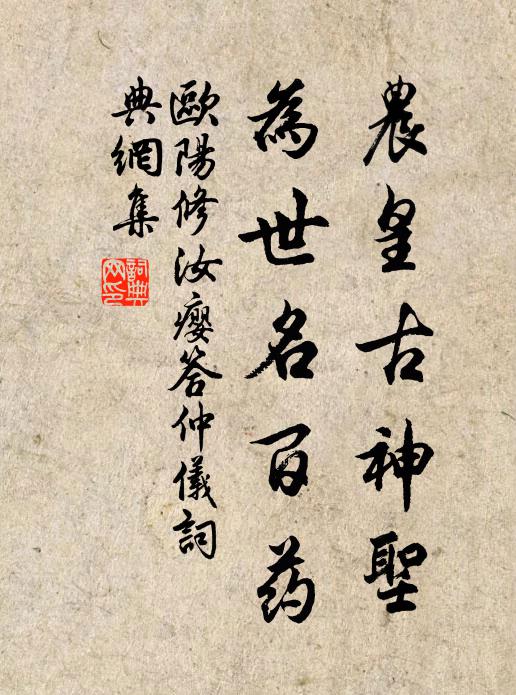 農皇古神聖
為世名百药
歐陽修汝癭答仲儀詞
典網集
詞典
网印